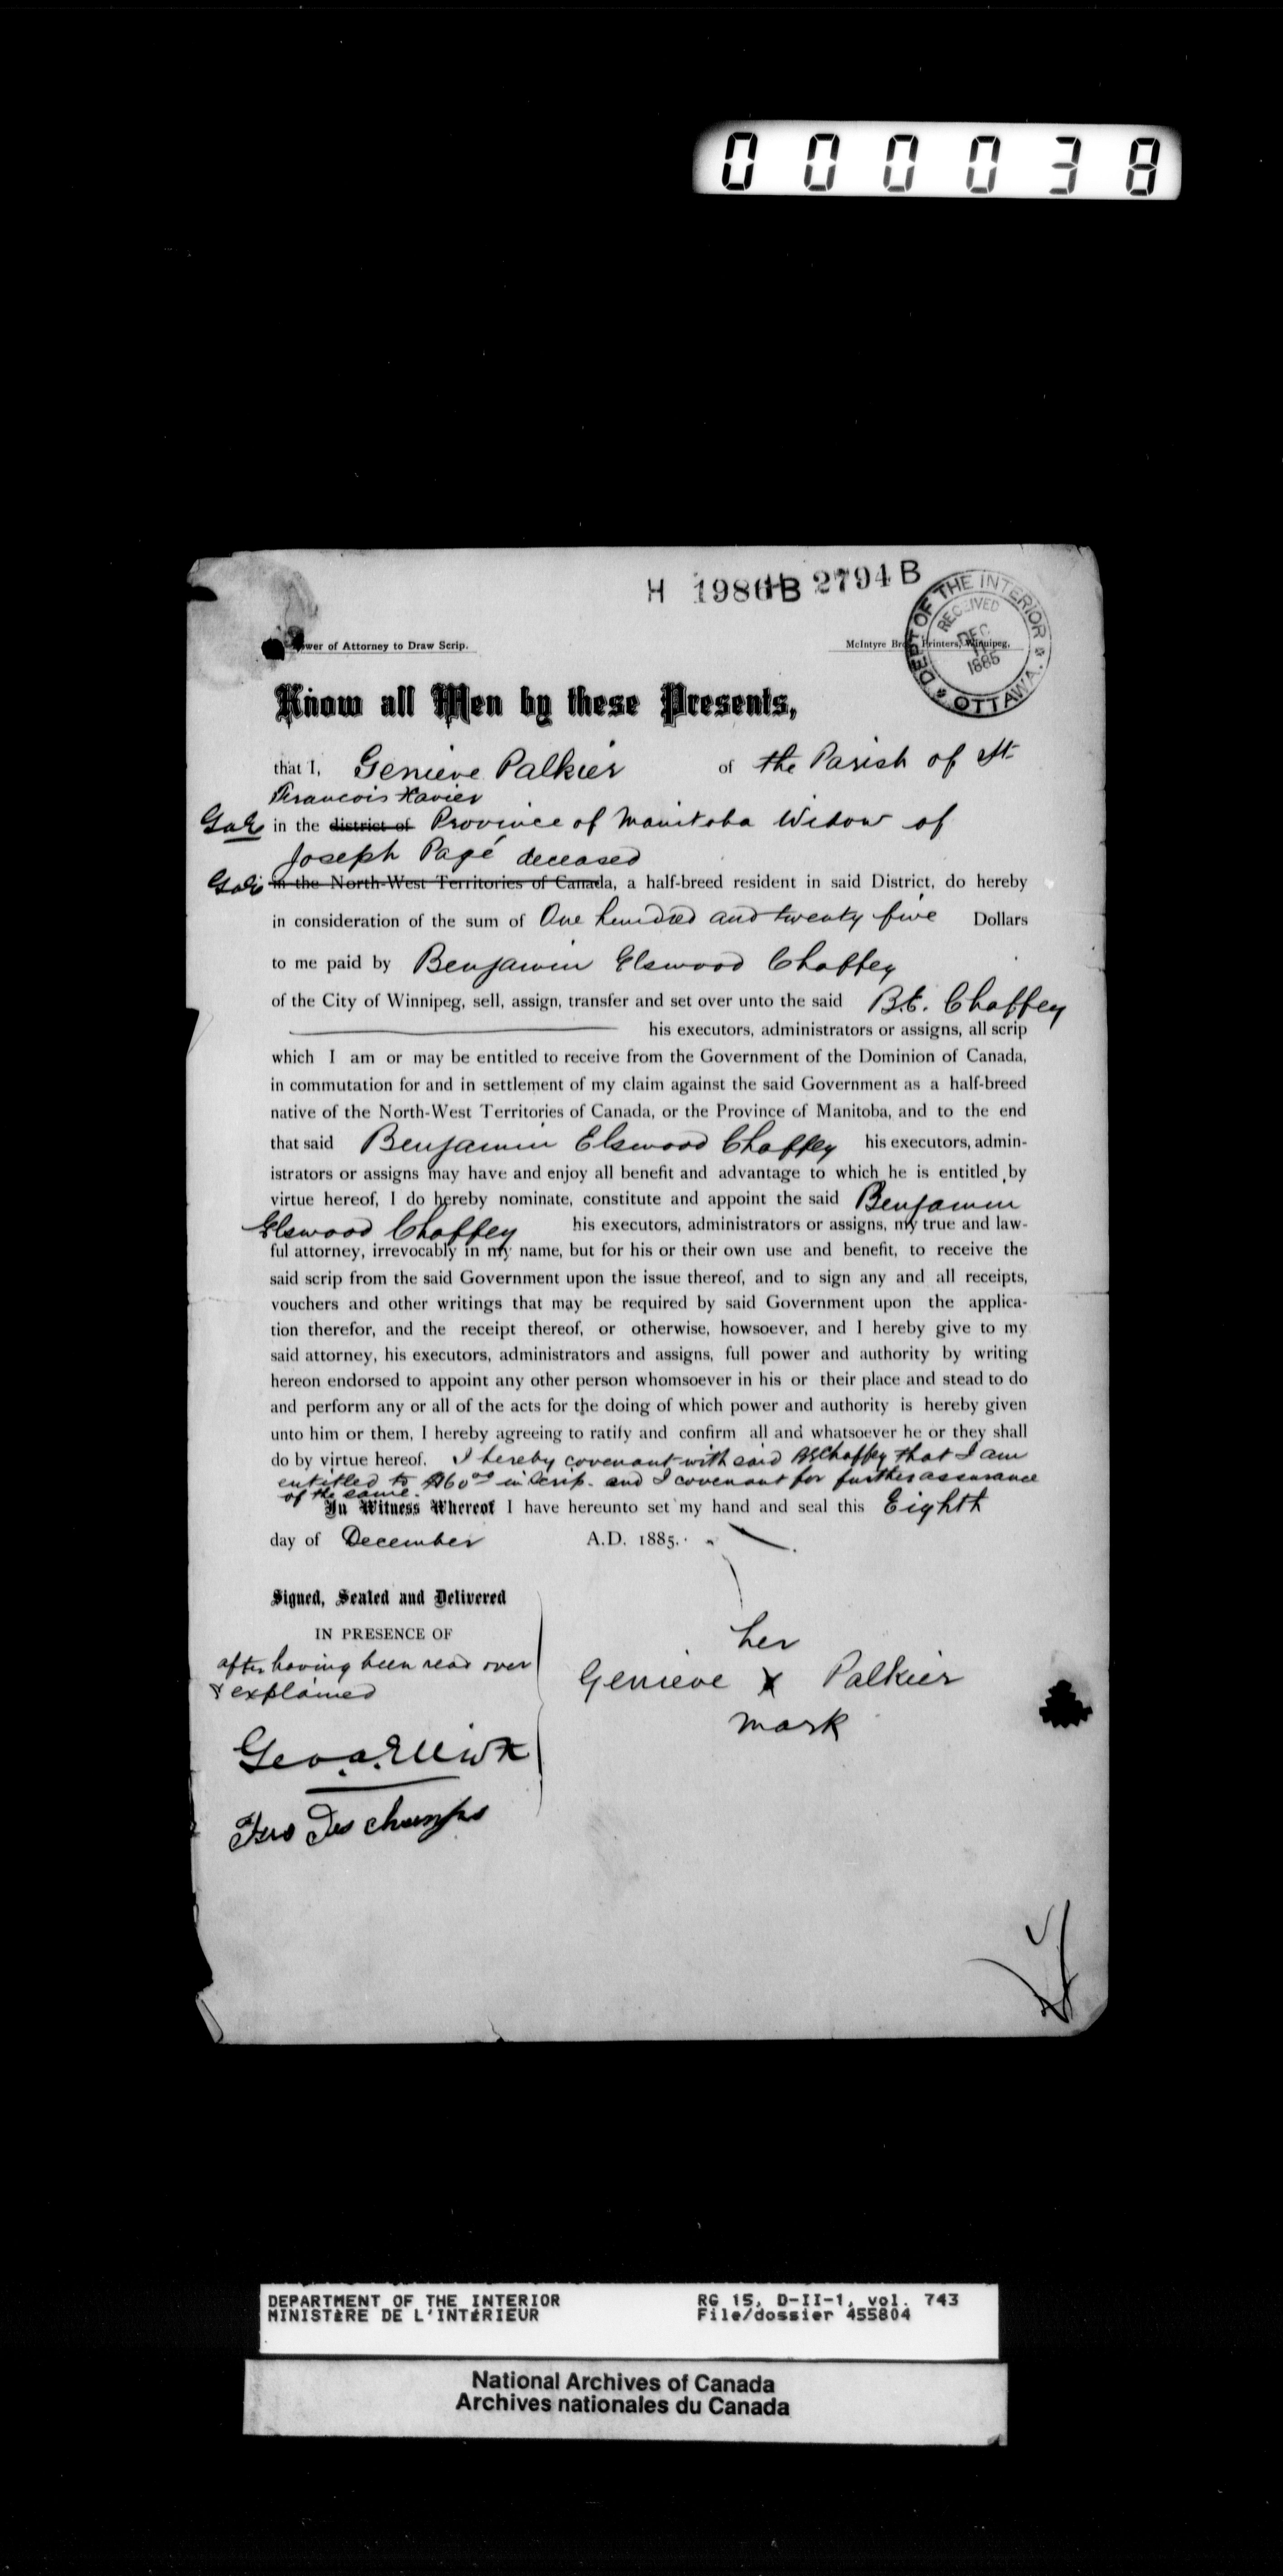 000038
H 1986 B 2794 B
DEPT OF THE INTERIOR
RECEIVED
DEC
1885
OTTAWA.
Power of Attorney to Draw Scrip.
McIntyre Bros. Printers, Winnipeg.
Know all Men by these Presents,
that I, Genieve Palkier of the Parish of St
Francois Xavier
GaE in the district of Province of Manitoba Widow of
Joseph Pagé deceased
GaE in the North-West Territories of Canada, a half-breed resident in said District, do hereby
in consideration of the sum of One hundred and twenty five Dollars
to me paid by Benjamin Elswood Chaffey
of the City of Winnipeg, sell, assign, transfer and set over unto the said B.E. Chaffey
his executors, administrators or assigns, all scrip
which I am or may be entitled to receive from the Government of the Dominion of Canada,
in commutation for and in settlement of my claim against the said Government as a half-breed
native of the North-West Territories of Canada, or the Province of Manitoba, and to the end
that said Benjamin Elswood Chaffey his executors, admin-
istrators or assigns may have and enjoy all benefit and advantage to which he is entitled by
virtue hereof, I do hereby nominate, constitute and appoint the said Benjamin
Elswood Chaffey his executors, administrators or assigns, my true and law-
ful attorney, irrevocably in my name, but for his or their own use and benefit, to receive the
said scrip from the said Government upon the issue thereof, and to sign any and all receipts,
vouchers and other writings that may be required by said Government upon the applica-
tion therefor, and the receipt thereof, or otherwise, howsoever, and I hereby give to my
said attorney, his executors, administrators and assigns, full power and authority by writing
hereon endorsed to appoint any other person whomsoever in his or their place and stead to do
and perform any or all of the acts for the doing of which power and authority is hereby given
unto him or them, I hereby agreeing to ratify and confirm all and whatsoever he or they shall
do by virtue hereof. I hereby covenant with said BEChaffey that I am
entitled to $160 00 in Scrip. and I covenant for further assurance
of the same.
In Witness Whereof I have hereunto set my hand and seal this Eighth
day of December A.D. 1885.
Signed, Sealed and Delivered
IN PRESENCE OF
after having been read over
& explained
her
Genieve X Palkier
mark
Geo. a. Elliott
Des champs
DEPARTMENT OF THE INTERIOR
MINISTÈRE DE L'INTÉRIEUR
RG 15, D-II-1, vol. 743
File/dossier 455804
National Archives of Canada
Archives nationales du Canada